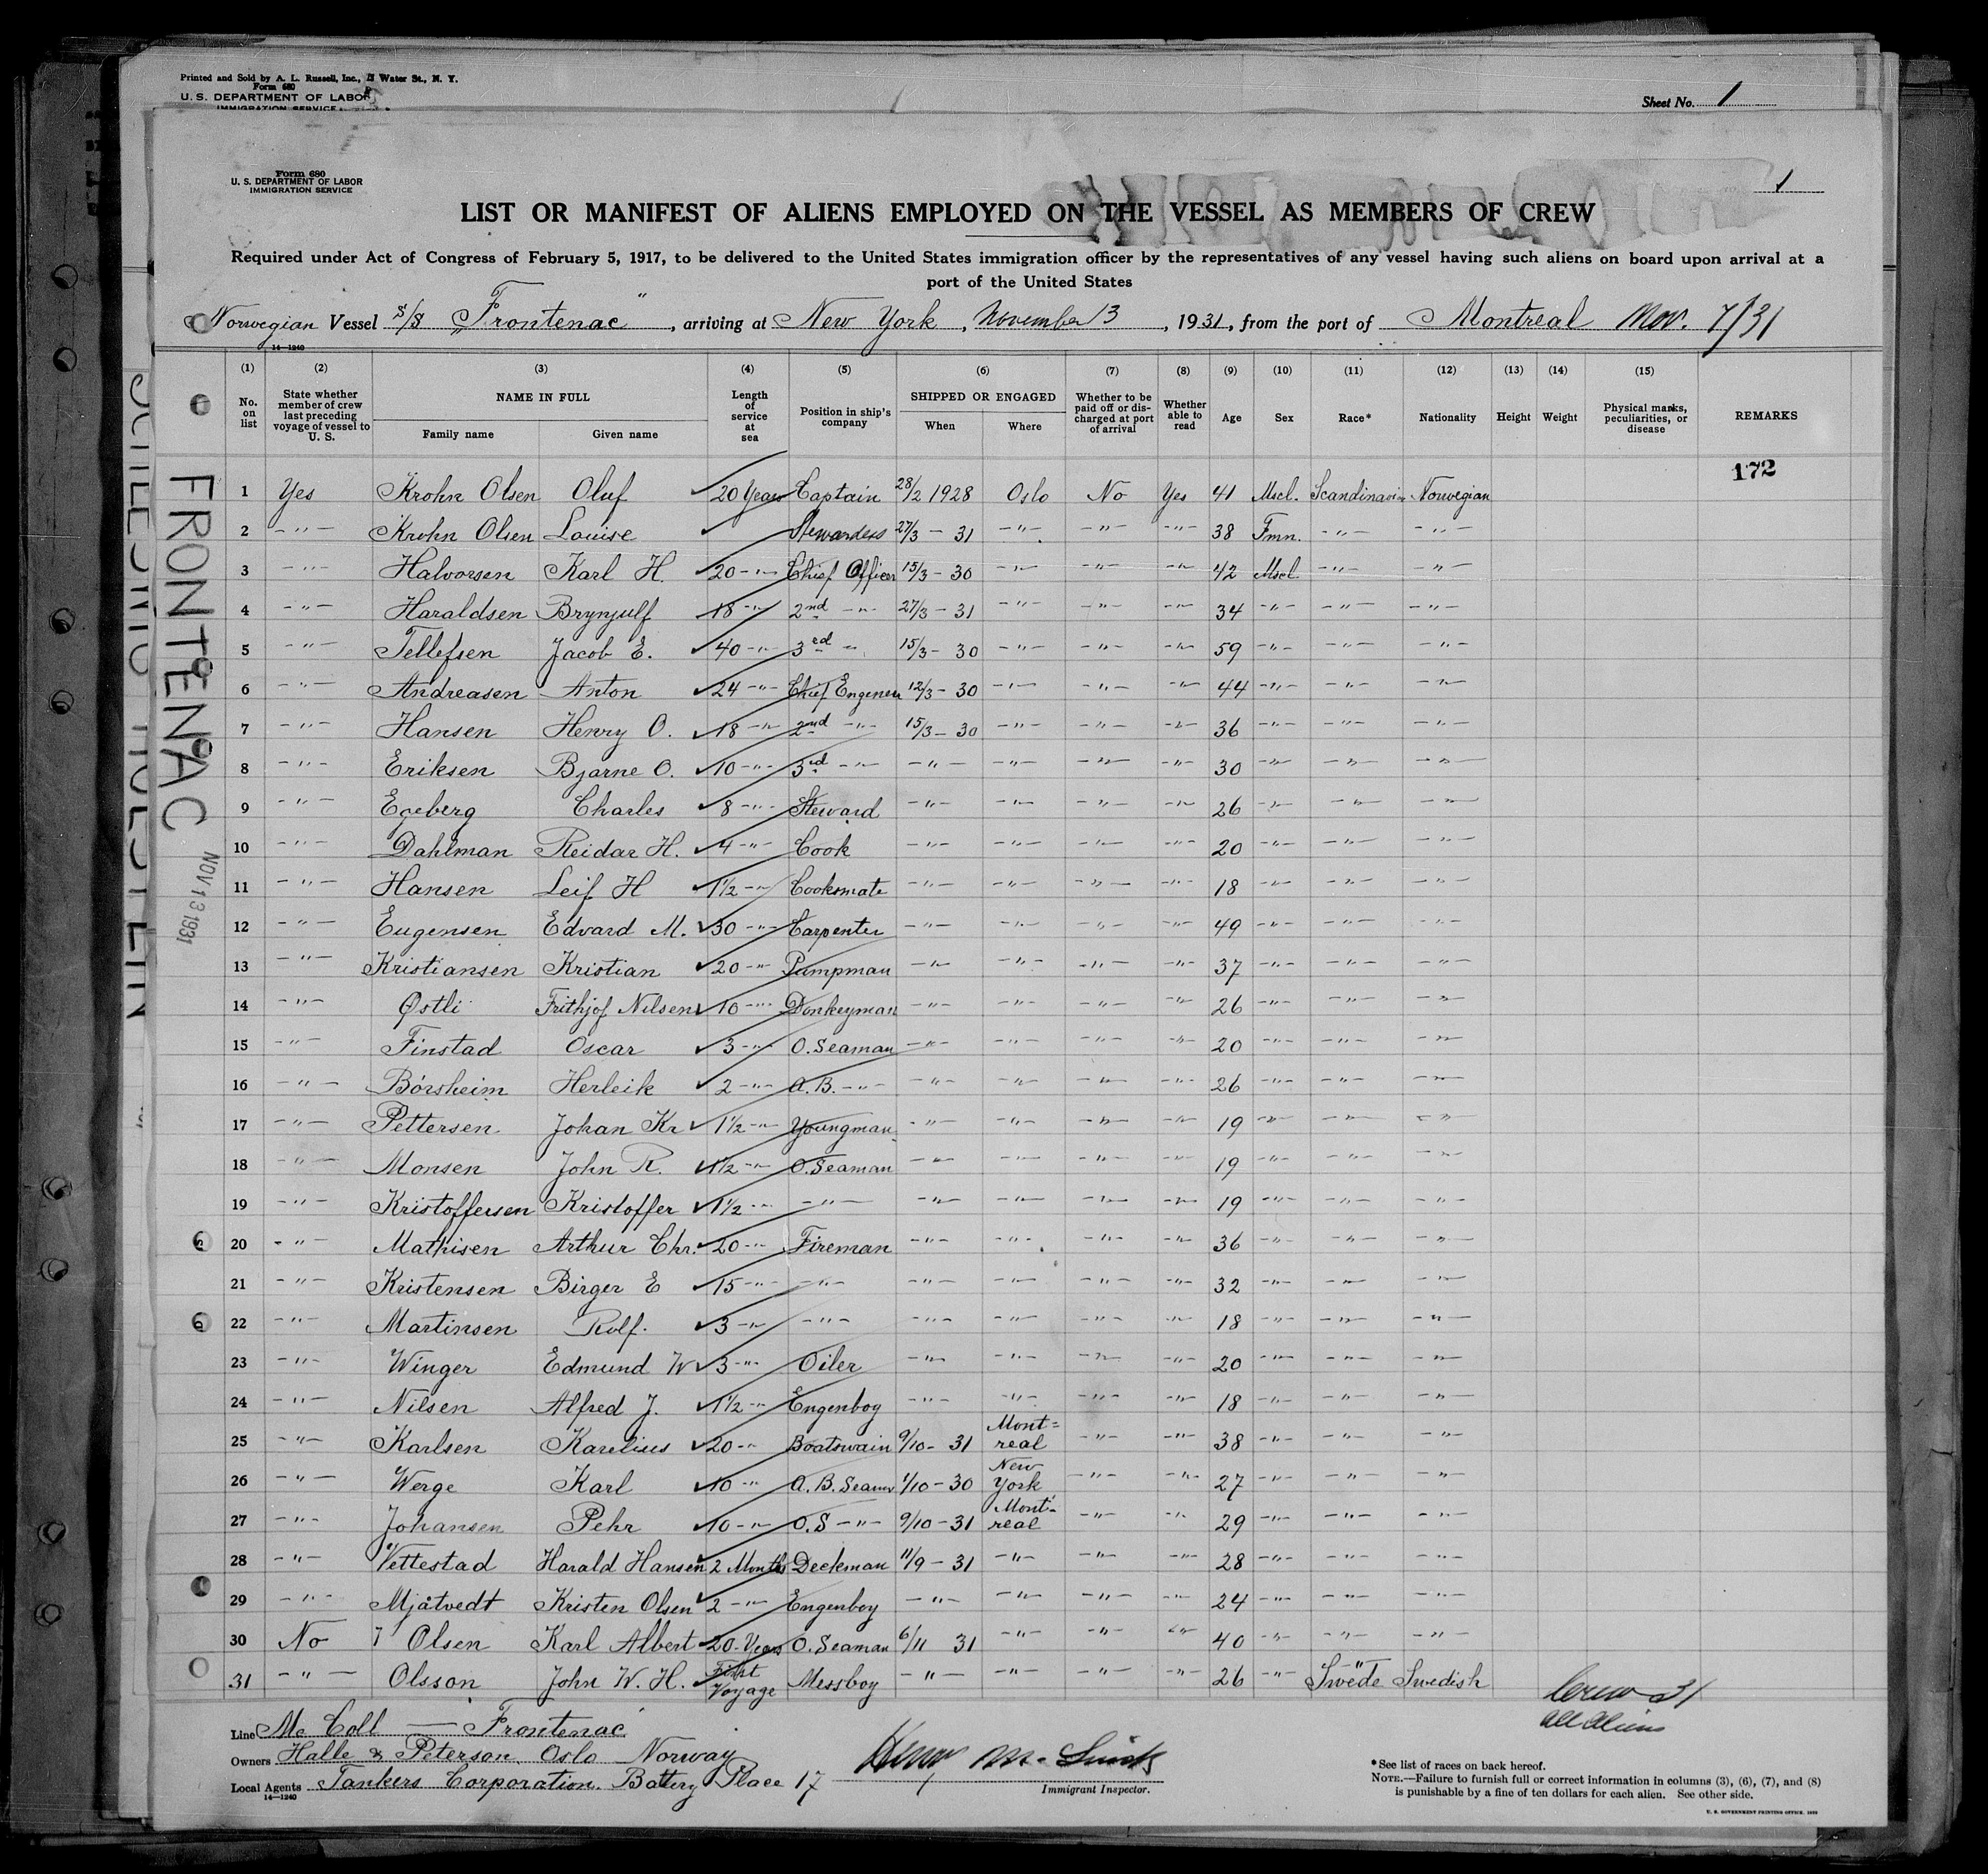 Printed and Sold by A. L. Russell, Inc., Water St., N. Y.
Form 680
U. S. DEPARTMENT OF LABOR
IMMIGRATION SERVICE
Sheet No. 1
Form 680
U. S. DEPARTMENT OF LABOR
IMMIGRATION SERVICE
1
LIST OR MANIFEST OF ALIENS EMPLOYED ON THE VESSEL AS MEMBERS OF CREW
Required under Act of Congress of February 5, 1917, to be delivered to the United States immigration officer by the representatives of any vessel having such aliens on board upon arrival at a
port of the United States
Norwegian Vessel S/S "Frontenac", arriving at New York, November 13, 1931, from the port of Montreal Nov. 7/31
14—1240
(1) (2) (3) (4) (5) (6) (7) (8) (9) (10) (11) (12) (13) (14) (15)
No. on list State whether member of crew last preceding voyage of vessel to U. S. NAME IN FULL Family name Given name Length of service at sea Position in ship's company SHIPPED OR ENGAGED When Where Whether to be paid off or discharged at port of arrival Whether able to read Age Sex Race* Nationality Height Weight Physical marks, peculiarities, or disease REMARKS
172
1 Yes Krohn Olsen Oluf 20 Years Captain 28/2 1928 Oslo No Yes 41 Mscl. Scandinavin Norwegian
2 -"- Krohn Olsen Louise Stewardess 27/3 - 31 -"- -"- -"- 38 Fmn. -"- -"-
3 -"- Halvorsen Karl H. 20 -"- Chief Officer 15/3 - 30 -"- -"- -"- 42 Mscl -"- -"-
4 -"- Haraldsen Brynjulf 18 -"- 2nd -"- 27/3 - 31 -"- -"- -"- 34 -"- -"- -"-
5 -"- Tellefsen Jacob E. 40 -"- 3rd -"- 15/3 - 30 -"- -"- -"- 59 -"- -"- -"-
6 -"- Andreasen Anton 24 -"- Chief Engeneer 12/3 - 30 -"- -"- -"- 44 -"- -"- -"-
7 -"- Hansen Henry O. 18 -"- 2nd -"- 15/3 - 30 -"- -"- -"- 36 -"- -"- -"-
8 -"- Eriksen Bjarne O. 10 -"- 3rd -"- -"- -"- -"- -"- 30 -"- -"- -"-
9 -"- Egeberg Charles 8 -"- Steward -"- -"- -"- -"- 26 -"- -"- -"-
10 -"- Dahlman Reidar H. 4 -"- Cook -"- -"- -"- -"- 20 -"- -"- -"-
11 -"- Hansen Leif H 1 1/2 -"- Cooksmate -"- -"- -"- -"- 18 -"- -"- -"-
12 -"- Eugensen Edvard M. 30 -"- Carpenter -"- -"- -"- -"- 49 -"- -"- -"-
13 -"- Kristiansen Kristian 20 -"- Pumpman -"- -"- -"- -"- 37 -"- -"- -"-
14 -"- Østli Frithjof Nilsen 10 -"- Donkeyman -"- -"- -"- -"- 26 -"- -"- -"-
15 -"- Finstad Oscar 3 -"- O. Seaman -"- -"- -"- -"- 20 -"- -"- -"-
16 -"- Börsheim Herleik 2 -"- A.B. -"- -"- -"- -"- -"- 26 -"- -"- -"-
17 -"- Pettersen Johan Kr 1 1/2 -"- Youngman -"- -"- -"- -"- 19 -"- -"- -"-
18 -"- Monsen John R. 1/2 -"- O. Seaman -"- -"- -"- -"- 19 -"- -"- -"-
19 -"- Kristoffersen Kristoffer 1 1/2 -"- -"- -"- -"- -"- -"- 19 -"- -"- -"-
20 -"- Mathisen Arthur Chr. 20 -"- Fireman -"- -"- -"- -"- 36 -"- -"- -"-
21 -"- Kristensen Birger E 15 -"- -"- -"- -"- -"- -"- 32 -"- -"- -"-
22 -"- Martinsen Rolf. 3 -"- -"- -"- -"- -"- -"- 18 -"- -"- -"-
23 -"- Winger Edmund W 3 -"- Oiler -"- -"- -"- -"- 20 -"- -"- -"-
24 -"- Nilsen Alfred J. 1 1/2 -"- Engenboy -"- -"- -"- -"- 18 -"- -"- -"-
25 -"- Karlsen Karelius 20 -"- Boatswain 9/10 - 31 Mont=real -"- -"- 38 -"- -"- -"-
26 -"- Werge Karl 10 -"- A. B. Seamn 1/10 - 30 New York -"- -"- 27 -"- -"- -"-
27 -"- Johansen Pehr 10 -"- O.S -"- 9/10 - 31 Mont-real -"- -"- 29 -"- -"- -"-
28 -"- Vettestad Harald Hansen 2 Months Deckman 11/9 - 31 -"- -"- -"- 28 -"- -"- -"-
29 -"- Mjåtvedt Kristen Olsen 2 -"- Engenboy -"- -"- -"- -"- 24 -"- -"- -"-
30 No Olsen Karl Albert 20 Years O. Seaman 6/11 31 -"- -"- -"- 40 -"- -"- -"-
31 -"- Olsson John W. H. First Voyage Messboy -"- -"- -"- -"- 26 -"- Swede Swedish
Crew 31
all aliens
Line Mc Coll — Frontenac
Owners Halle & Peterson Oslo Norway
Local Agents Tankers Corporation. Battery Place 17
14—1240
Immigrant Inspector.
*See list of races on back hereof.
NOTE.—Failure to furnish full or correct information in columns (3), (6), (7), and (8)
is punishable by a fine of ten dollars for each alien. See other side.
U. S. GOVERNMENT PRINTING OFFICE
FRONTENAC
NOV 13 1931